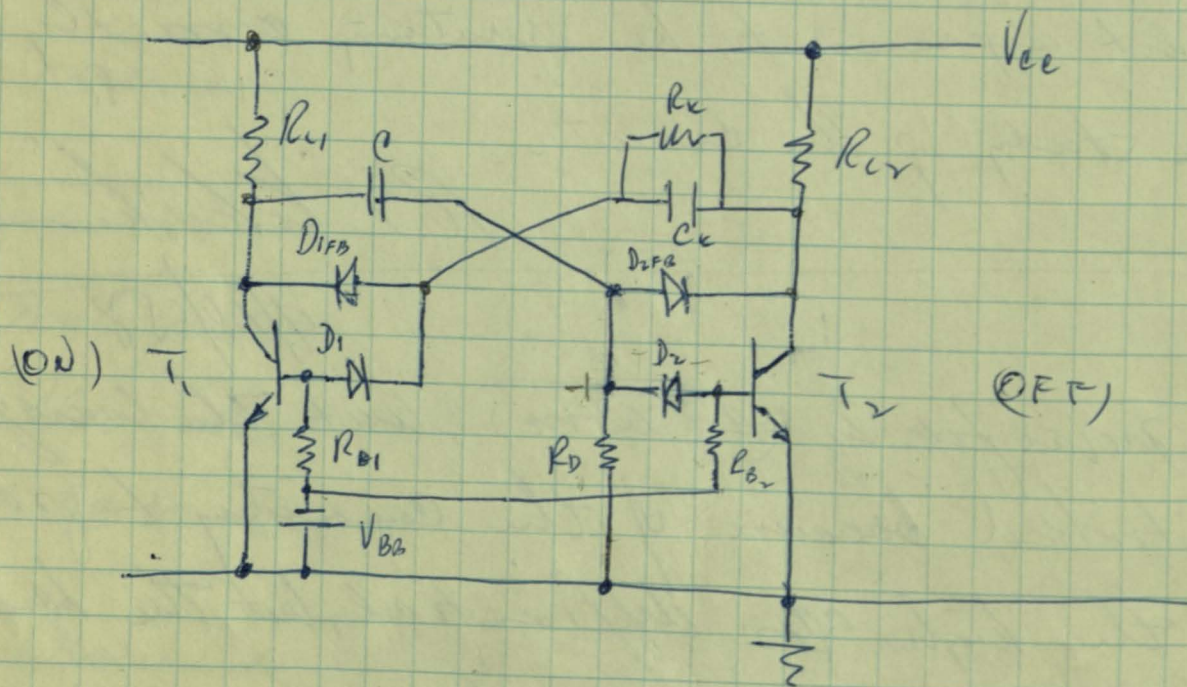 Vcc
RK
RL1
C
RL2
CK
D1FB
D2FB
(ON)
T1
D1
D2
T2
(OFF)
RB1
RD
RB2
VBB